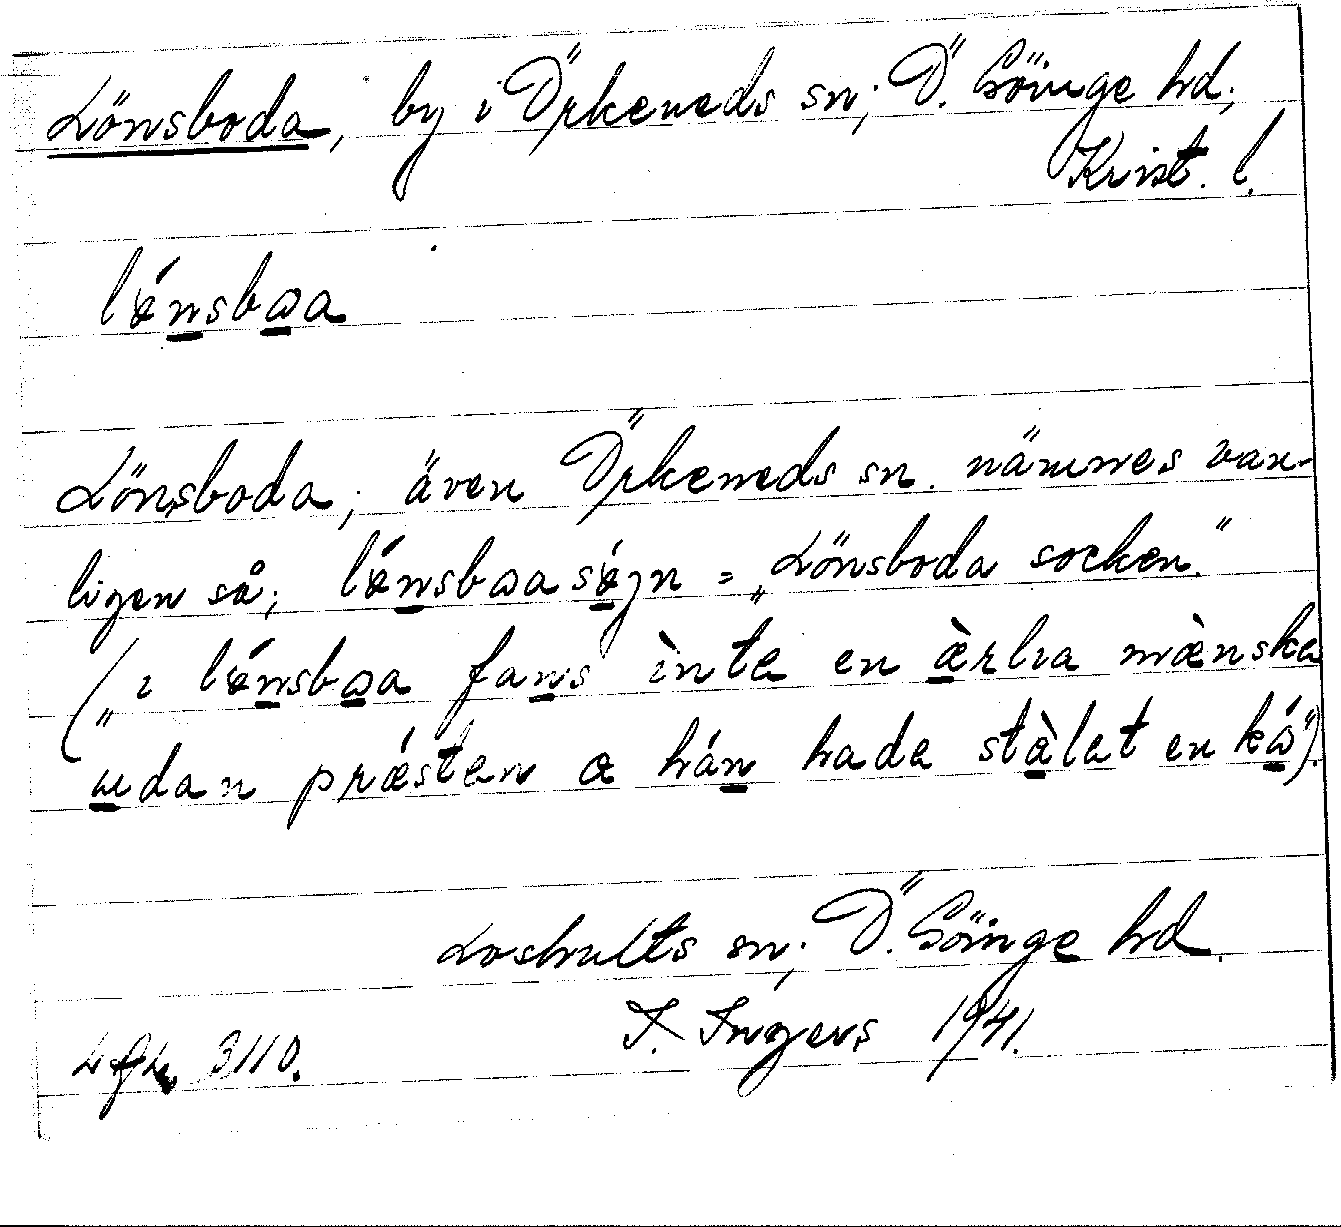 Lönsboda, by i Örkeneds sn; Ö. Göinge hd;
Krist. l.
lǿnsbωa
Lönsboda; även Örkeneds sn. nämnes van-
ligen så; lǿnsbωa sǿgn = „Lönsboda socken."
(„i lǿnsbωa fans ìnte en æ̀rlia mæ̀nska
udan prǽsten a hán hade stàlet en kó").
Loshults sn; Ö. Göinge hd.
I. Ingers 1941.
3110.